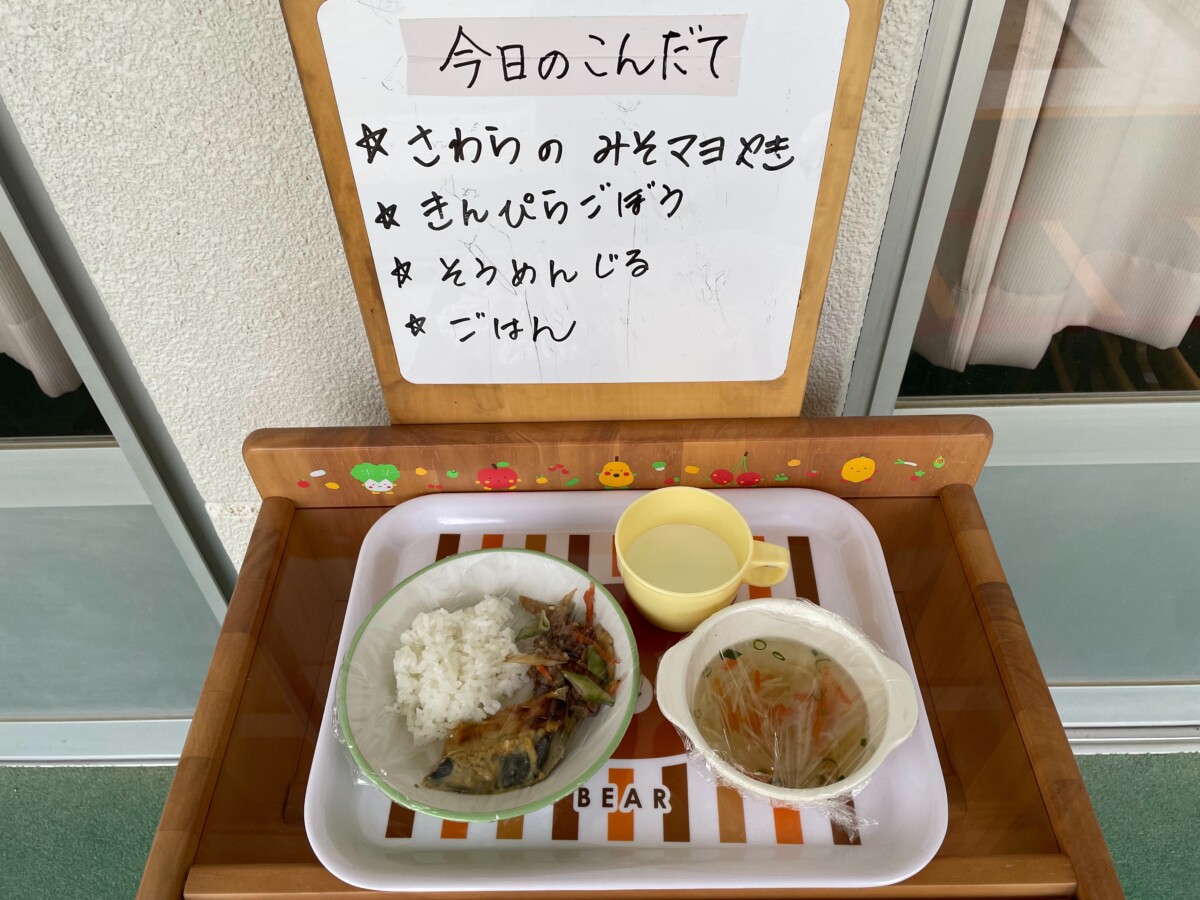 今日のこんだて
☆ さわらの みそマヨやき
☆ きんぴらごぼう
☆ そうめんじる
☆ ごはん
BEAR